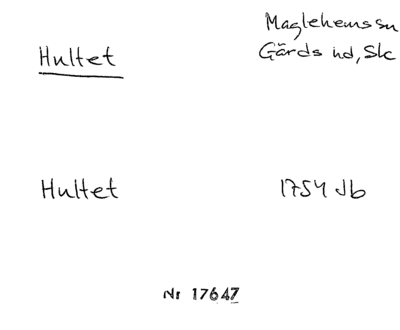 Hultet
Maglehems sn
Gärds hd, Sk
Hultet
1754 Jb
Nr 17647